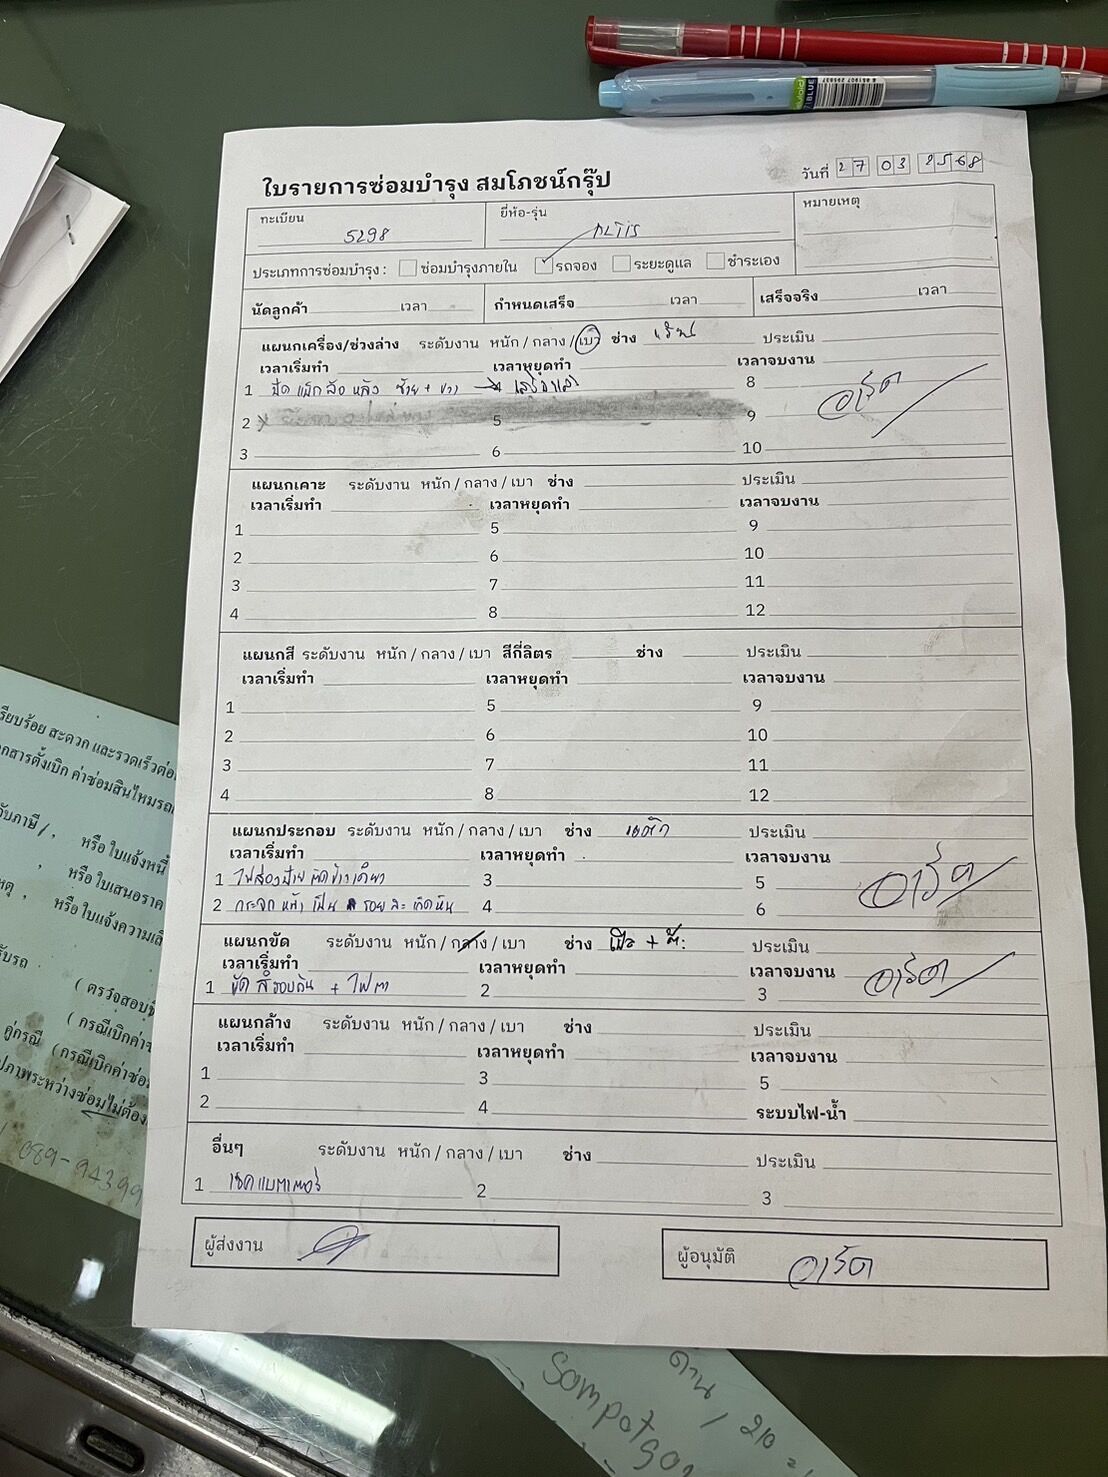 ใบรายการซ่อมบำรุง สมโภชน์กรุ๊ป
วันที่ 27 03 2568
ทะเบียน 5298 ยี่ห้อ-รุ่น ALTIS หมายเหตุ
ประเภทการซ่อมบำรุง : ซ่อมบำรุงภายใน รถจอง ระยะดูแล ชำระเอง
นัดลูกค้า เวลา กำหนดเสร็จ เวลา เสร็จจริง เวลา
แผนกเครื่อง/ช่วงล่าง ระดับงาน หนัก / กลาง / เบา ช่าง ประเมิน
เวลาเริ่มทำ เวลาหยุดทำ เวลาจบงาน
1 ปิด แม็ก ล้อ หลัง ซ้าย + ขวา 8 อาร์ต
2 5 9
3 6 10
แผนกเคาะ ระดับงาน หนัก / กลาง / เบา ช่าง ประเมิน
เวลาเริ่มทำ เวลาหยุดทำ เวลาจบงาน
1 5 9
2 6 10
3 7 11
4 8 12
แผนกสี ระดับงาน หนัก / กลาง / เบา สีกี่ลิตร ช่าง ประเมิน
เวลาเริ่มทำ เวลาหยุดทำ เวลาจบงาน
1 5 9
2 6 10
3 7 11
4 8 12
แผนกประกอบ ระดับงาน หนัก / กลาง / เบา ช่าง ประเมิน
เวลาเริ่มทำ เวลาหยุดทำ เวลาจบงาน
1 ไฟส่องป้าย ติดข้างเดียว 3 5 อาร์ต
2 กระจก หน้า เป็น รอย สะเก็ดหิน 4 6
แผนกขัด ระดับงาน หนัก / กลาง / เบา ช่าง ประเมิน
เวลาเริ่มทำ เวลาหยุดทำ เวลาจบงาน
1 ขัด สีรอบคัน + ไฟตา 2 3 อาร์ต
แผนกล้าง ระดับงาน หนัก / กลาง / เบา ช่าง ประเมิน
เวลาเริ่มทำ เวลาหยุดทำ เวลาจบงาน
1 3 5
2 4 ระบบไฟ-น้ำ
อื่นๆ ระดับงาน หนัก / กลาง / เบา ช่าง ประเมิน
1 เชคแบตเตอรี่ 2 3
ผู้ส่งงาน ผู้อนุมัติ อาร์ต
รียบร้อย สะดวก และรวดเร็วต่อ
กสารตั้งเบิก ค่าซ่อมสินไหมรถ
หรือ ใบแจ้งหนี้
หรือ ใบเสนอราค
หรือ ใบแจ้งความเสี
รับรถ
( ตรวจสอบ
( กรณีเบิกค่า
คู่กรณี (กรณีเบิกค่าซ่อ
ปภาพระหว่างซ่อมไม่ต้อง
089-94399
BLUE